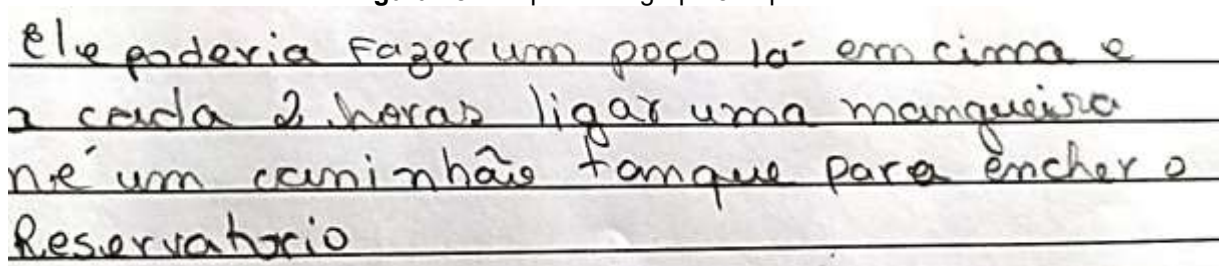 Ele poderia Fazer um poço lá em cima e
a cada 2 horas ligar uma mangueira
né um caminhão tanque para encher o
Reservatorio